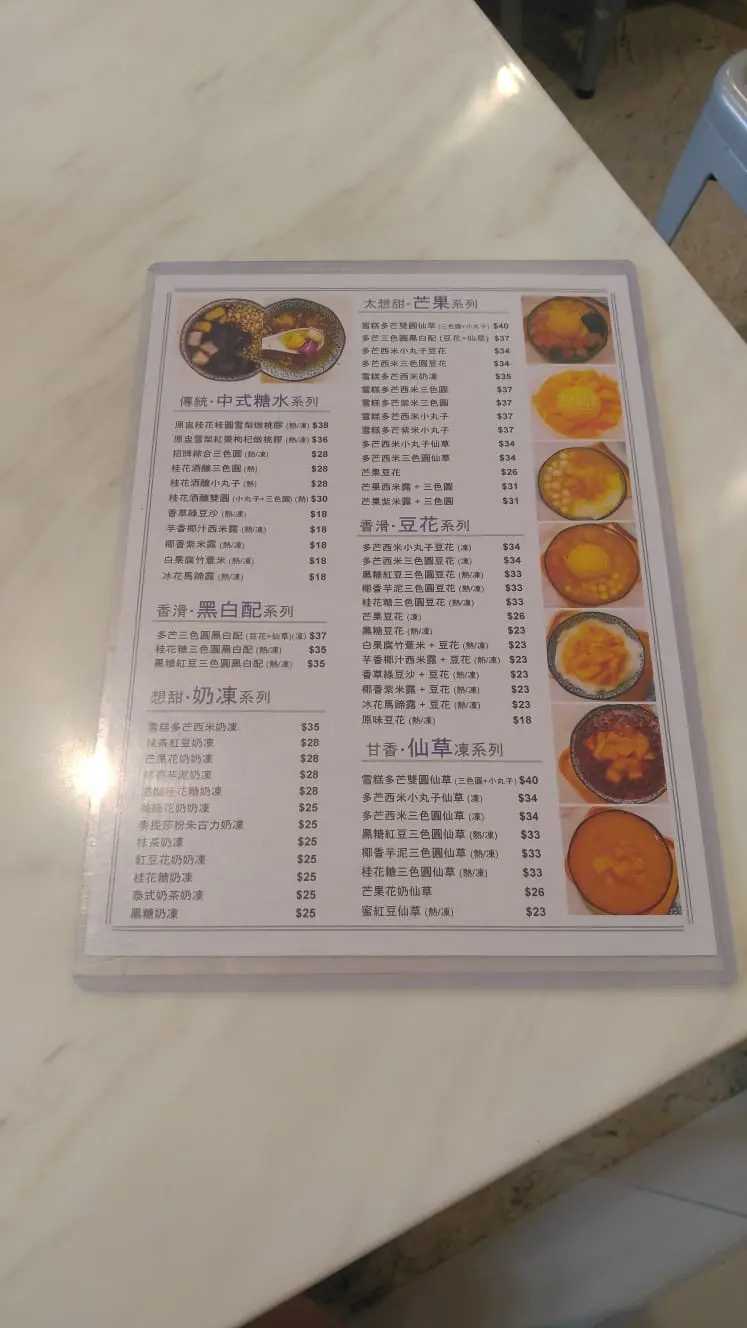 傳統·中式糖水系列
原盅桂花桂圓雪梨燉桃膠 (熱/凍) $38
原盅雪梨紅棗枸杞燉桃膠 (熱/凍) $36
招牌綜合三色圓 (熱/凍) $28
桂花酒釀三色圓 (熱) $28
桂花酒釀小丸子 (熱) $28
桂花酒釀雙圓 (小丸子+三色圓) (熱) $30
香草綠豆沙 (熱/凍) $18
芋香椰汁西米露 (熱/凍) $18
椰香紫米露 (熱/凍) $18
白果腐竹薏米 (熱/凍) $18
冰花馬蹄露 (熱/凍) $18
香滑·黑白配系列
多芒三色圓黑白配 (豆花+仙草)(凍) $37
桂花糖三色圓黑白配 (熱/凍) $35
黑糖紅豆三色圓黑白配 (熱/凍) $35
想甜·奶凍系列
雪糕多芒西米奶凍 $35
抹茶紅豆奶凍 $28
芒果花奶奶凍 $28
芋泥奶凍 $28
桂花糖奶凍 $28
花奶奶凍 $25
麥提莎粉朱古力奶凍 $25
抹茶奶凍 $25
紅豆花奶奶凍 $25
桂花糖奶凍 $25
泰式奶茶奶凍 $25
黑糖奶凍 $25
太想甜·芒果系列
雪糕多芒雙圓仙草 (三色圓+小丸子) $40
多芒三色圓黑白配 (豆花+仙草) $37
多芒西米小丸子豆花 $34
多芒西米三色圓豆花 $34
雪糕多芒西米奶凍 $35
雪糕多芒西米三色圓 $37
雪糕多芒紫米三色圓 $37
雪糕多芒西米小丸子 $37
雪糕多芒紫米小丸子 $37
多芒西米小丸子仙草 $34
多芒西米三色圓仙草 $34
芒果豆花 $26
芒果西米露 + 三色圓 $31
芒果紫米露 + 三色圓 $31
香滑·豆花系列
多芒西米小丸子豆花 (凍) $34
多芒西米三色圓豆花 (凍) $34
黑糖紅豆三色圓豆花 (熱/凍) $33
椰香芋泥三色圓豆花 (熱/凍) $33
桂花糖三色圓豆花 (熱/凍) $33
芒果豆花 (凍) $26
黑糖豆花 (熱/凍) $23
白果腐竹薏米 + 豆花 (熱/凍) $23
芋香椰汁西米露 + 豆花 (熱/凍) $23
香草綠豆沙 + 豆花 (熱/凍) $23
椰香紫米露 + 豆花 (熱/凍) $23
冰花馬蹄露 + 豆花 (熱/凍) $23
原味豆花 (熱/凍) $18
甘香·仙草凍系列
雪糕多芒雙圓仙草 (三色圓+小丸子) $40
多芒西米小丸子仙草 (凍) $34
多芒西米三色圓仙草 (凍) $34
黑糖紅豆三色圓仙草 (熱/凍) $33
椰香芋泥三色圓仙草 (熱/凍) $33
桂花糖三色圓仙草 (熱/凍) $33
芒果花奶仙草 $26
蜜紅豆仙草 (熱/凍) $23